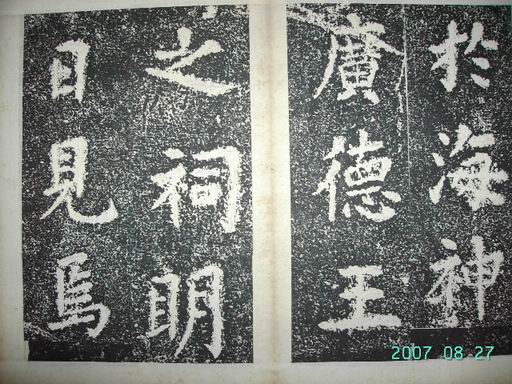 於海神
廣德王
之祠明
日見焉
2007 08 27